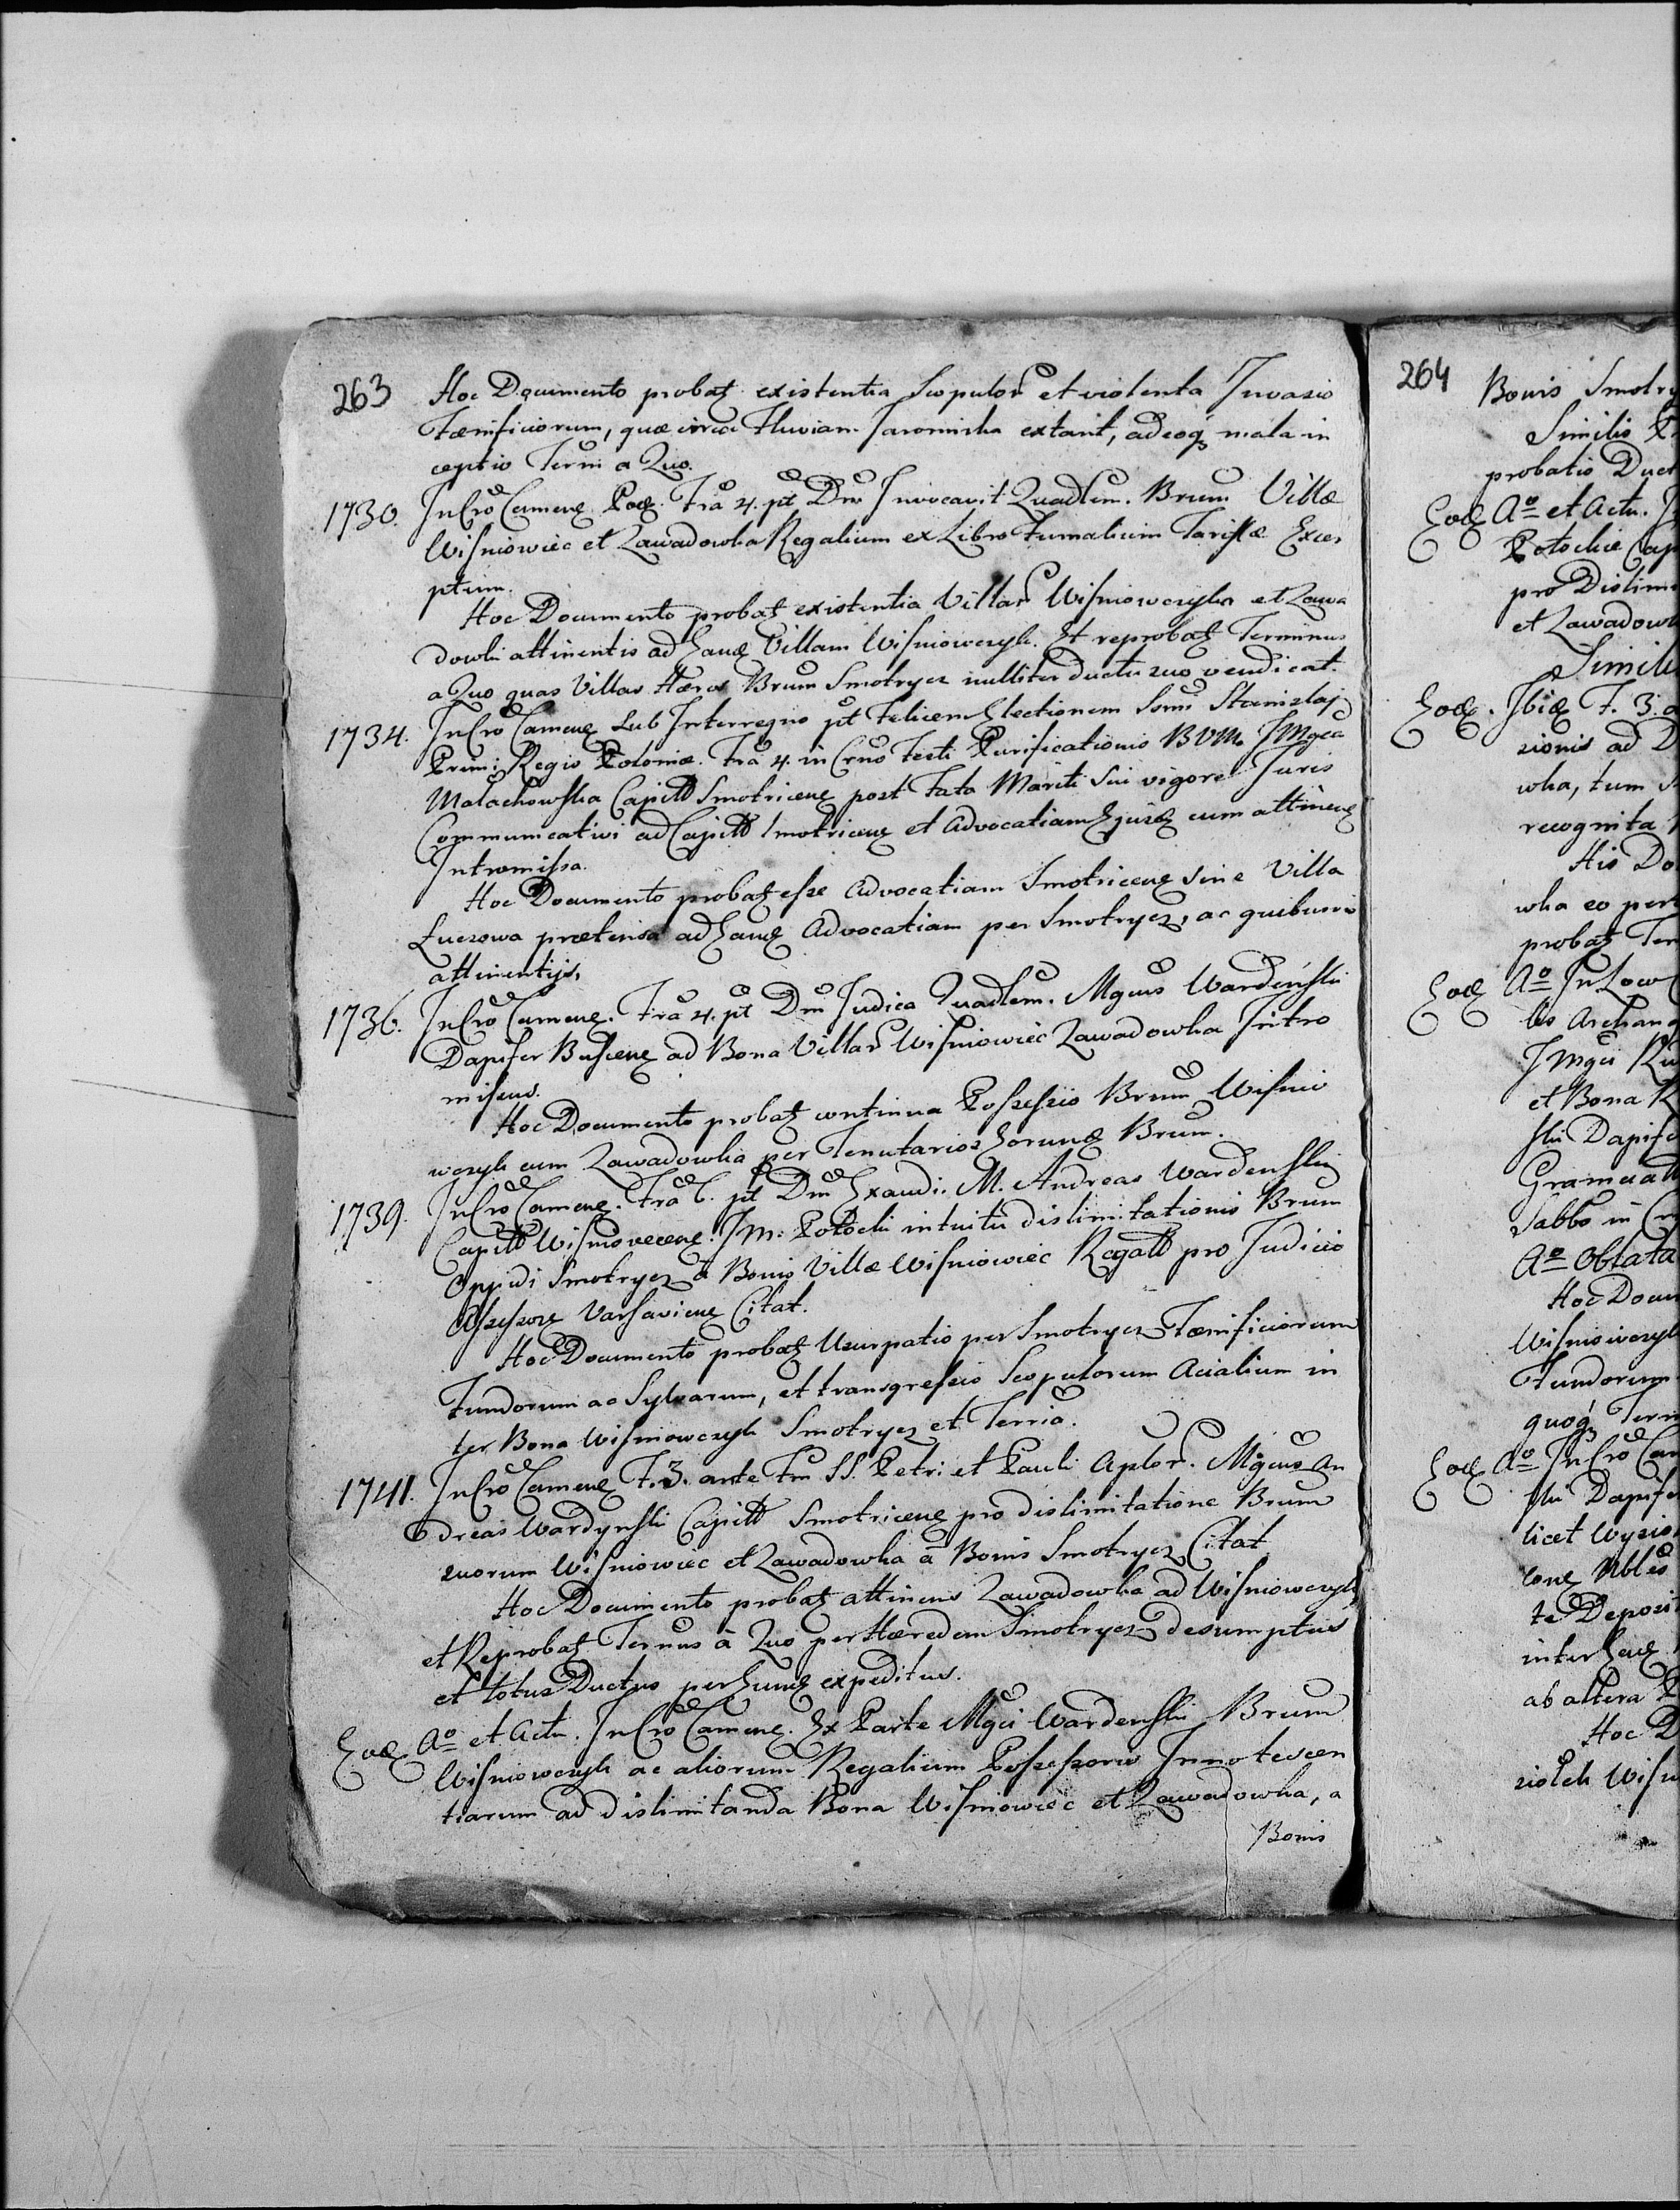 263 Hoc Documento probatꝫ existentia Scopulor et violenta Invasio
Fænificiorum, quæ circa Fluvium Jaromirka extant, adeoqꝫ mala in
ceptio Termi a Quo.
1730. In Cro Camene Pod. Fra 4. pt Dm Invocavit Quadlem. Brum Villæ
Wiſniowiec et Zawadowka Regalium ex Libro Fumalium Tariffæ Excer
ptum.
Hoc Documento probatꝫ existentia Villar Wiſniowczyk et Zawa
dowki attinentis ad eand Villam Wiſniowczyk. Et reprobatꝫ Terminus
a Quo quas Villas Hæres Brum Smotrycz nulliter ductu suo vendicat.
1734. In Cro Camene Sub Interregno pt Felicem Electionem Sermi Stanislaj
Primi Regis Poloniæ. Fra 4. in Crno Festi Purificationis BVM. J Mgca
Malachowſka Capitt Smotricene post Fata Mariti Sui vigore Juris
Communicativi ad Capitt Smotricene et Advocatiam Ejusd cum attinene
Intromiſsa.
Hoc Documento probatꝫ eſse Advocatiam Smotricene sine Villa
Luczowa prætensa ad eand Advocatiam per Smotrycz, ac quibusvis
attinentijs,
1736. In Cro Camene. Fra 4. pt Dm Judica Quadlem. Mgcus Wardeńſki
Dapifer Buſcene ad Bona Villar Wiſniowiec Zawadowka Intro
miſsus.
Hoc Documento probatꝫ continua Poſseſsio Brum Wiſnio
wczyk cum Zawadowka per Tenutarios eorund Brum.
1739. In Cro Camene. Fra 6. pt Dm Exaudi. M. Andreas Wardenſki
Capitt Wiſniovecene. J M: Potocki intuitu dislimitationis Brum
Oppidi Smotrycz a Bonis Villæ Wiſniowiec Regatt pro Judicio
Aſseſsore Varſaviene Citat.
Hoc Documento probatꝫ Usurpatio per Smotrycz Fænificiorum
Fundorum ac Sylvarum, et transgreſsio Scopulorum Acialium in
ter Bona Wiſniowczyk Smotrycz et Terria.
1741. In Cro Camene F. 3. ante Fm SS. Petri et Pauli Aplor. Mgcus An
dreas Wardynſki Capitt Smotricene pro dislimitatione Brum
suorum Wiſniowiec et Zawadowka a Bonis Smotrycz Citat
Hoc Documento probatꝫ attinens Zawadowka ad Wiſniowczyk
et Reprobatꝫ Ternus a Quo per Hæredem Smotrycz desumptus
et totus Ductus per eund expeditus.
Eod Aº et Actu. In Cro Camene. Ex Parte Mgci Wardenſki Brum
Wiſniowczyk ac aliorum Regalium Poſseſsoris Innotescen
tiarum ad dislimitanda Bona Wiſniowiec et Zawadowka, a
Bonis
264 Bonis Smotry
Similis
probatio Duct
Eod Aº et Actu.
Potockie Cap
pro Dislim
et Zawadow
Simili
Eod. Ibid F. 3. a
sionis ad
wka, tum
recognita
His Do
wka eo per
probatꝫ Ter
Eod Aº In
lis Archang
J Mgci
et Bona
ſki Dapife
Gramecatt
Sabbo in
Aº Oblata
Hoc Docum
Wiſniowczyk
Fundorum
quoqꝫ Term
Eod Aº In Cro Cam
ſki Dapife
licet
cone Nbles
te Deposit
inter Eand
ab altera
Hoc D
Wiſn